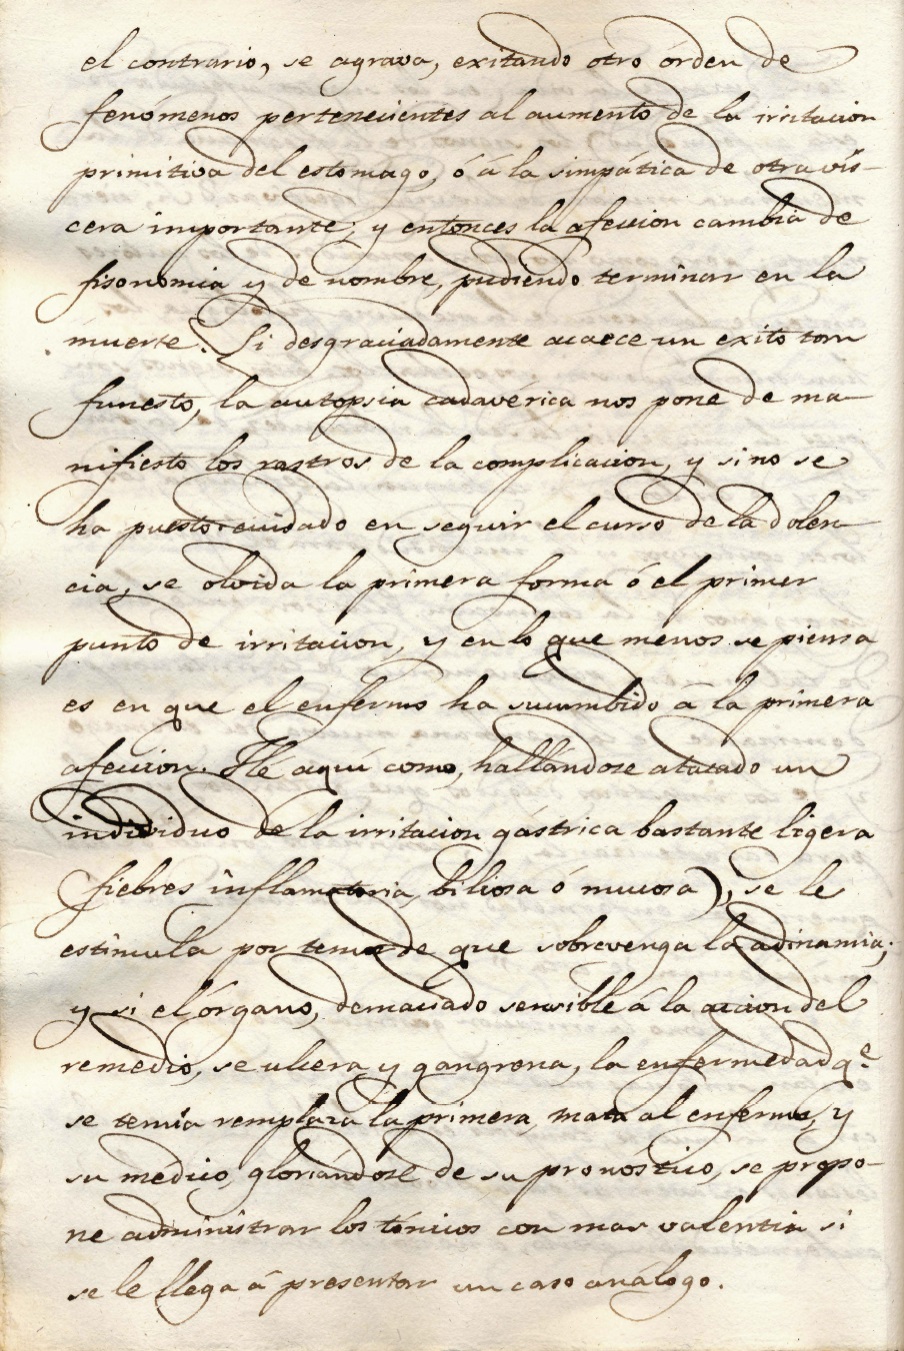 el contrario, se agrava, exitando otro órden de
fenómenos pertenecientes al aumento de la irritacion
primitiva del estomago, ó á la simpática de otra vís-
cera importante; y entonces la afeccion cambia de
fisonomia y de nombre, pudiendo terminar en la
muerte. Si desgraciadamente acaece un exito tan
funesto, la autopsia cadavérica nos pone de ma-
nifiesto los rastros de la complicacion, y si no se
ha puesto cuidado en seguir el curso de la dolen-
cia, se olvida la primera forma ó el primer
punto de irritacion, y en lo que menos se piensa
es en que el enfermo ha sucumbido á la primera
afeccion. Hé aquí como, hallándose atacado un
individuo de la irritacion gástrica bastante ligera
(fiebres inflamatoria, biliosa ó mucosa), se le
estimula por temor de que sobrevenga la adinamia;
y si el órgano, demaciado sensible á la accion del
remedio, se ulcera y gangrena, la enfermedad q.e
se temia remplaza la primera, mata al enfermo, y
su medico, gloriándose de su pronóstico, se propo-
ne administrar los tónicos con mas valentia si
se le llega á presentar un caso análogo.